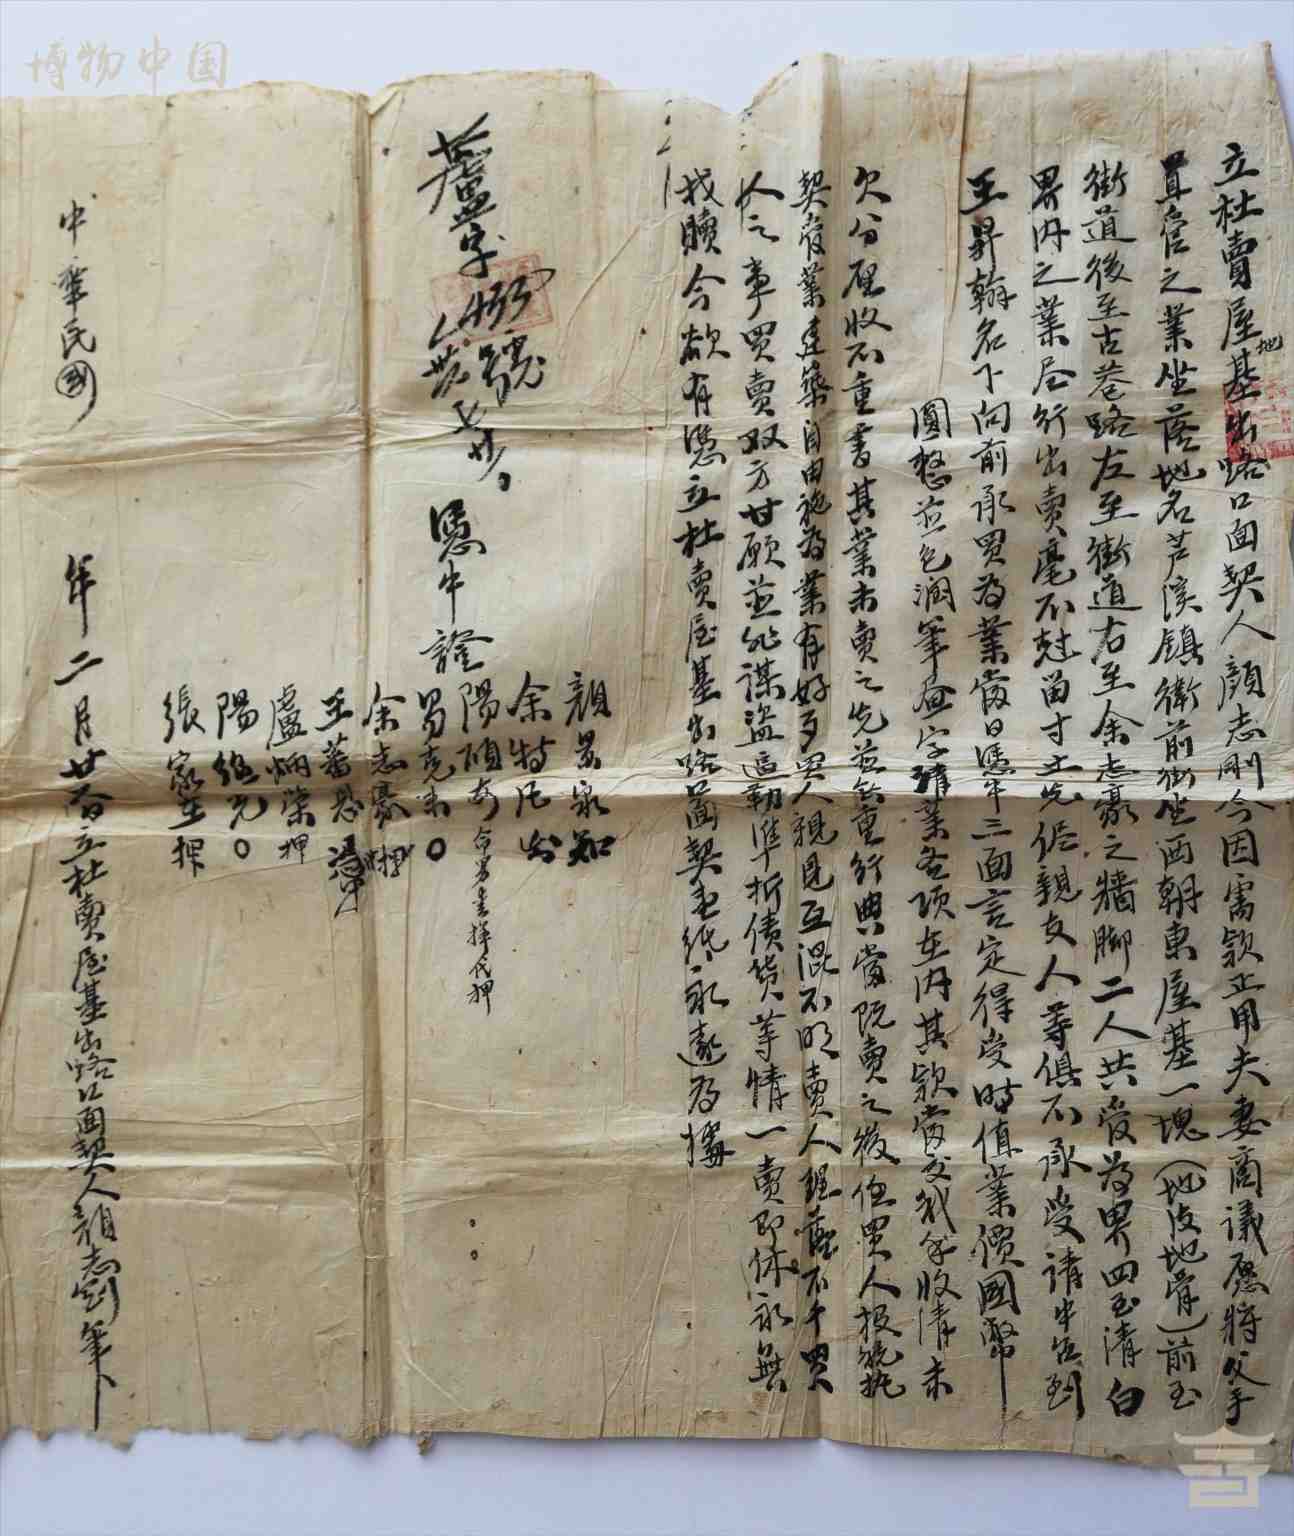 博物中国
立杜賣屋地基出路口面契人顏志剛今因需款正用夫妻商議愿將父手
置管之業坐落地名芦溪鎮衛前街坐西朝東屋基一塊(地皮地骨)前至
街道後至古巷路左至街道右至余志豪之牆脚二人共管為界四至清白
界内之業尽行出賣毫不愆留寸土先侭親支人等俱不承受請中伍到
王昇翰名下向前承買為業當日憑中三面言定得受時值業價國幣
圓整並包潤筆画字請業各項在内其款當交我手收清未
欠分厘收不重書其業未賣之先並無重行典當既賣之後任買人投税执
契管業建築自由施為業有好歹買人親見互混不明賣人理落不干買
人之事買賣双方甘願並非謀盗逼勒準折债货等情一賣即休永無
找贖今欲有憑立杜賣屋基出路口面契壹纸永遠為據
蘆字 號
憑中證
顏景泉知
余特凡
陽碩 命男 代押
易克 〇
余志豪押
王蕃
盧炳榮押
陽 〇
張家玉押
中華民國 年二月廿 日立杜賣屋基出路口面契人顏志剛筆